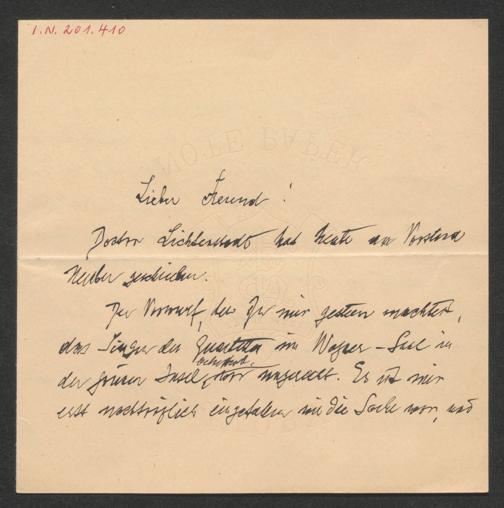 I.N. 201.410
NOTE PAPER
Lieber Freund!
Doctor Lichtenstadt hat heute an Vorstand
Neuber geschrieben.
Der Vorwurf, den Du mir gestern machtest,
das Singen des Quartetts im Wagner-Saal in
der grünen Insel, war ungerecht. Es ist mir
erst nachträglich eingefallen wie die Sache war, und